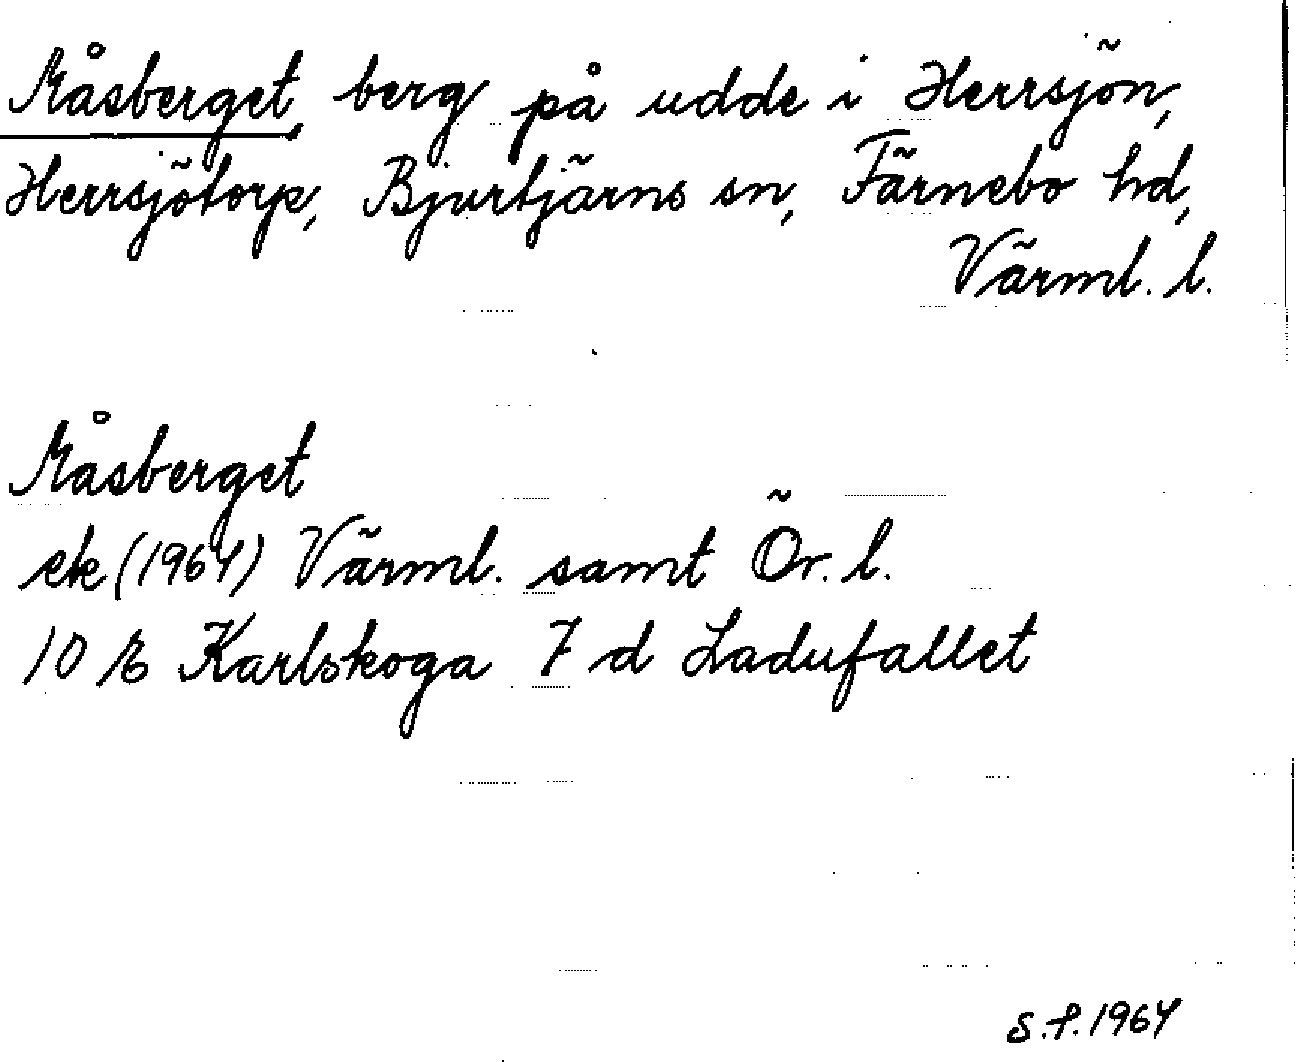 Måsberget, berg på udde i Herrsjön,
Herrsjötorp, Bjurtjärns sn, Färnebo hd,
Värml. l.
Måsberget
ek (1964) Värml. samt Ör. l.
10 E Karlskoga 7 d Ladufallet
S.P. 1964